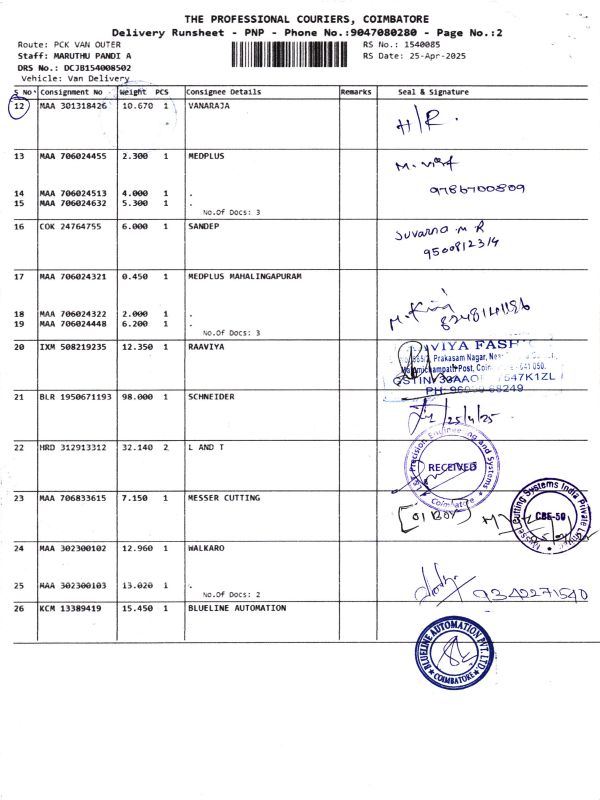 THE PROFESSIONAL COURIERS, COIMBATORE
Delivery Runsheet - PNP - Phone No.:9047080280 - Page No.:2
Route: PCK VAN OUTER RS No.: 1540085
Staff: MARUTHU PANDI A RS Date: 25-Apr-2025
DRS No.: DCJB154008502
Vehicle: Van Delivery
S No Consignment No Weight PCS Consignee Details Remarks Seal & Signature
12 MAA 301318426 10.670 1 VANARAJA
H/R.
13 MAA 706024455 2.300 1 MEDPLUS
9786700809
14 MAA 706024513 4.000 1 .
15 MAA 706024632 5.300 1 .
No.Of Docs: 3
16 COK 24764755 6.000 1 SANDEP
Suvarna M R
9500812314
17 MAA 706024321 0.450 1 MEDPLUS MAHALINGAPURAM
18 MAA 706024322 2.000 1 .
19 MAA 706024448 6.200 1 .
No.Of Docs: 3
20 IXM 508219235 12.350 1 RAAVIYA
Prakasam Nagar,
21 BLR 1950671193 98.000 1 SCHNEIDER
25/4/25
22 HRD 312913312 32.140 2 L AND T
Precision Engineering and Systems
RECEIVED
Coimbatore
23 MAA 706833615 7.150 1 MESSER CUTTING
[01 Box]
Messer Cutting Systems India Private
CBE-50
24 MAA 302300102 12.960 1 WALKARO
25 MAA 302300103 13.020 1 .
No.Of Docs: 2
9342271540
26 KCM 13389419 15.450 1 BLUELINE AUTOMATION
BLUELINE AUTOMATION PVT. LTD.
COIMBATORE